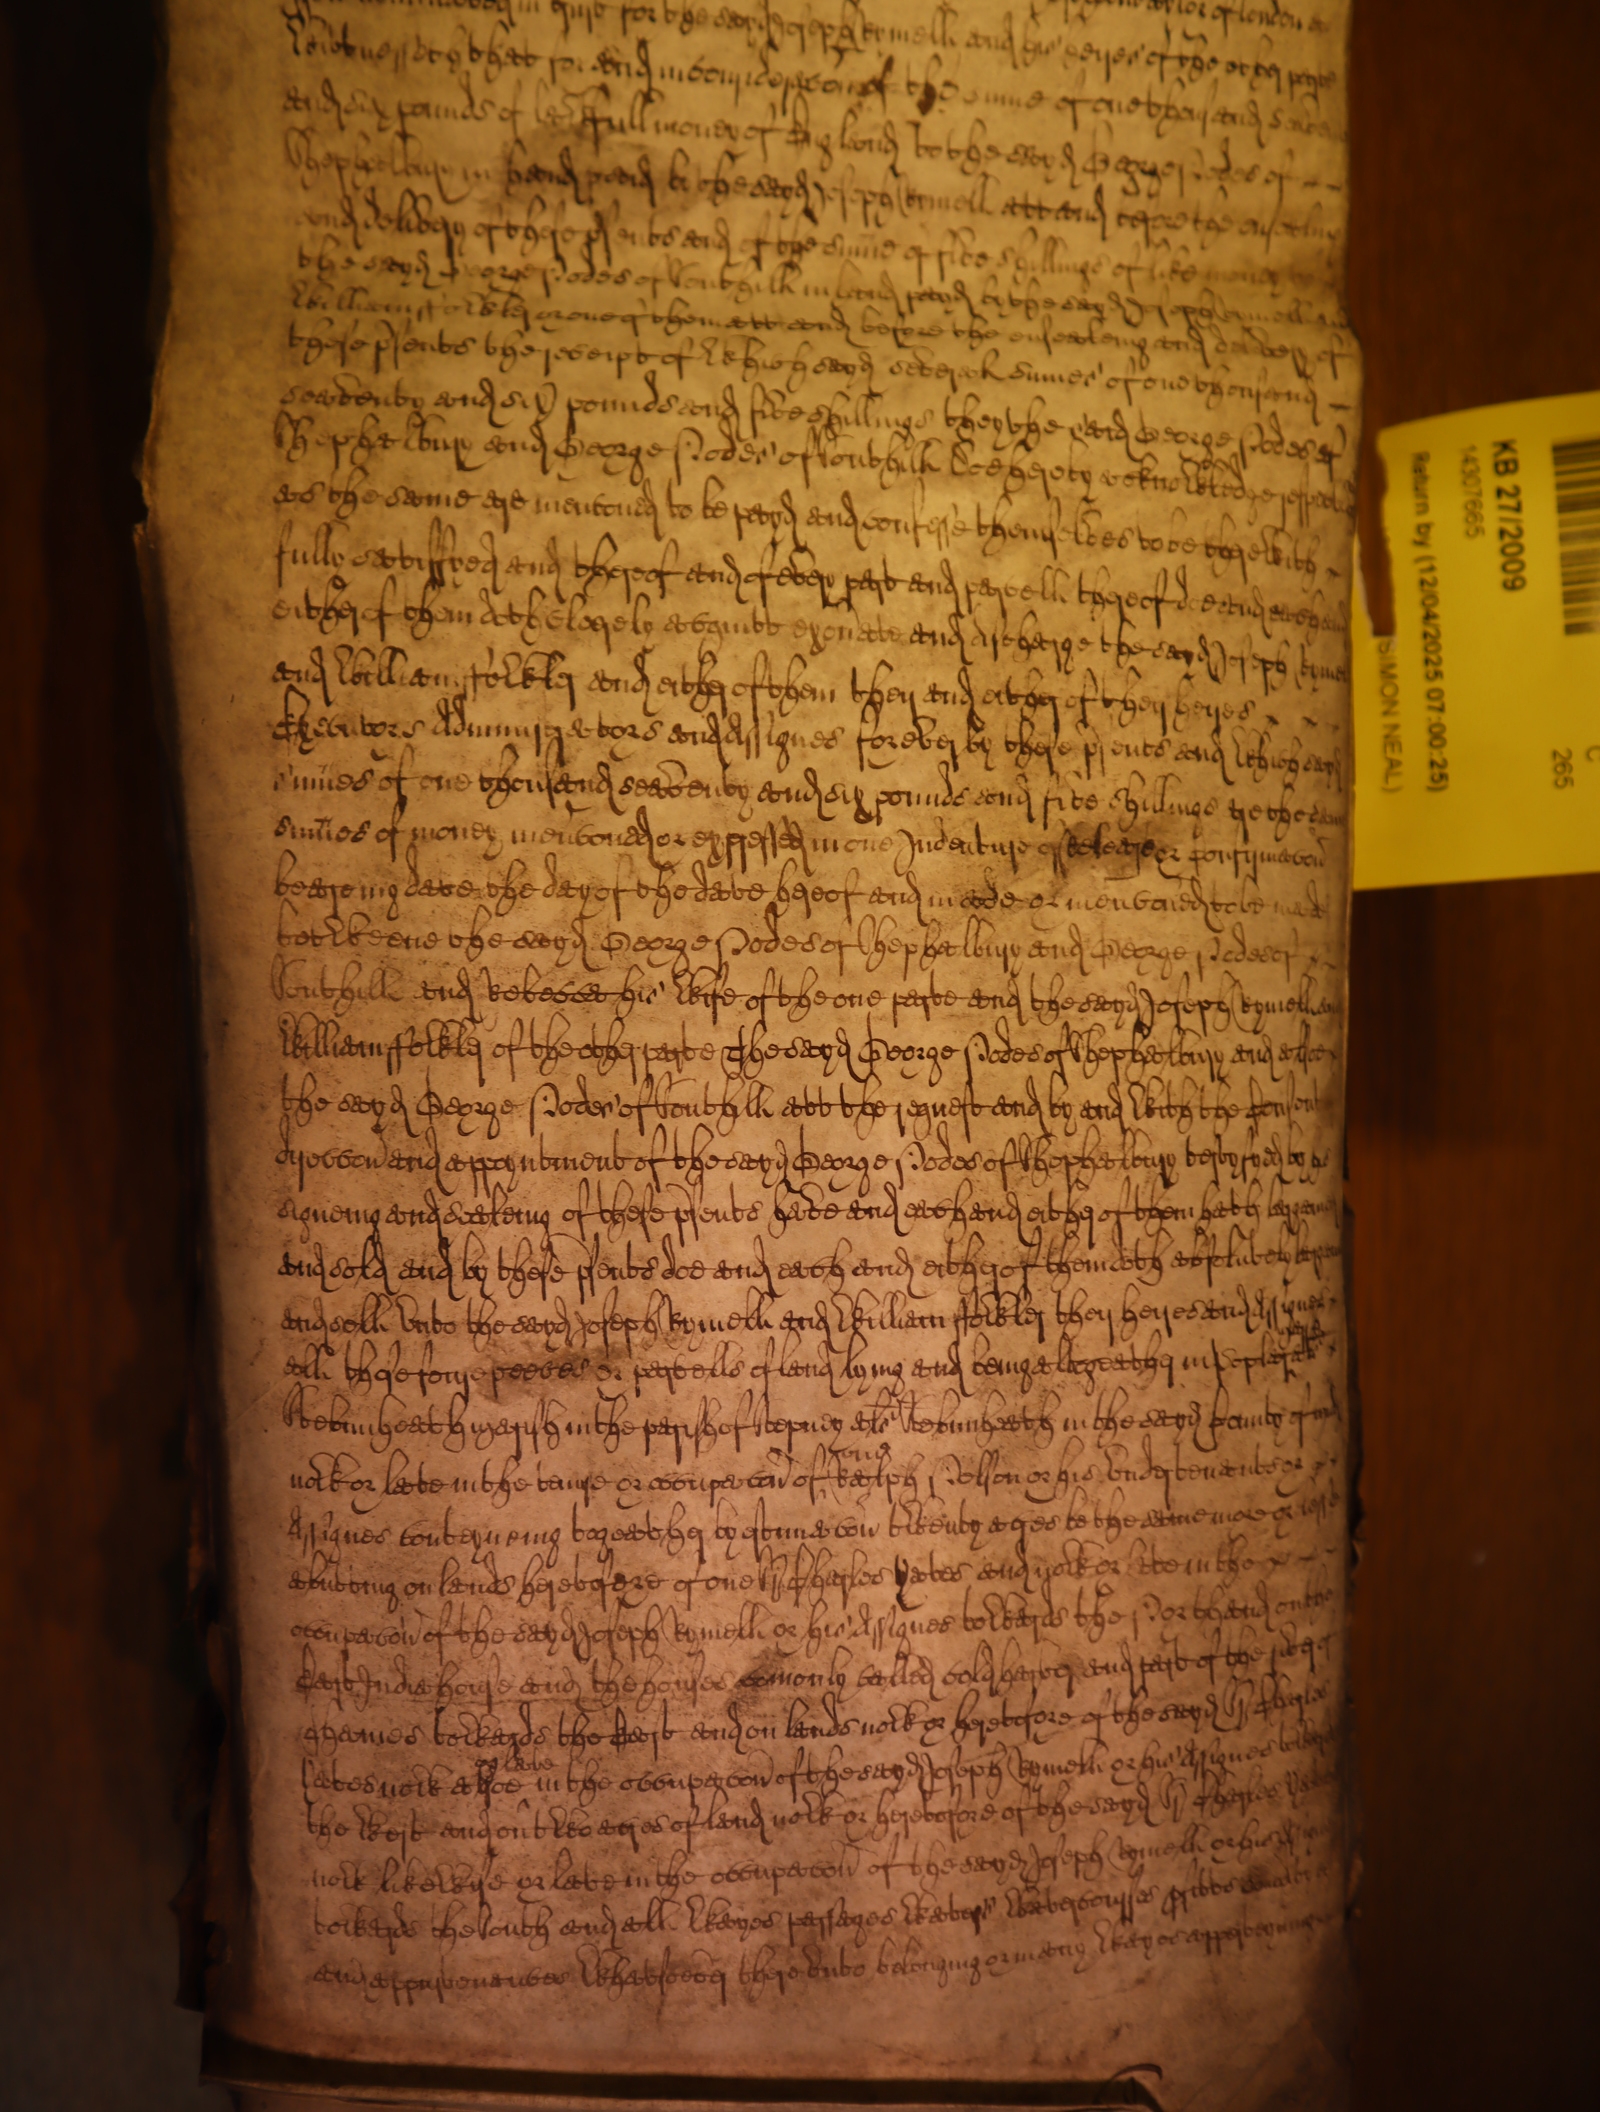 in trust for the sayd Joseph Kymell and his heyres of the other parte
Wittnesseth that for and in consideracon of the sume of one thousand seaventy
and six pounds of lawfull money of England to the sayd George Nodes of
Shephalbury in hand payd by the sayd Joseph Kymell att and before the ensealing
and delivery of these psents and of the sume of five shillings of like money to
the sayd George Nodes of Southill in hand payd by the sayd Joseph Kymell and
William ffowkler or one of them att and before the ensealeing and delivery of
these psents the receipt of which sayd severall sumes of one thousand
seaventy and six pounds and five shillings they the said George Nodes of
Shephalbury and George Nodes of Southill doe hereby acknowledge
as the same are menconed to be payd and confesse themselves to be therewith
fully satisffyed and thereof and of every part and parcell thereof doe and each and
either of them doth clearely acquitt exonerate and discharge the sayd Joseph Kymell
and William ffowkler and either of them their and either of their heyres
Executors Administrators and Assignes forever by these psents and which sayd
sumes of one thousand seaventy and six pounds and five shillings are the same
sumes of money menconed or expressed in one Indenture of Release or Confirmacon
beareing date the day of the date hereof and made or menconed to be made
betweene the sayd George Nodes of Shephalbury and George Nodes of
Southill and Rebecca his wife of the one parte and the sayd Joseph Kymell and
William ffowkler of the other parte The sayd George Nodes of Shephalbury and alsoe
the sayd George Nodes of Southill att the request and by and with the Consent
direccon and appoyntment of the sayd George Nodes of Shephalbury testyfyed by his
signeing and sealeing of these psents have and each and either of them hath bargained
and sold and by these psents doe and each and either of them doth absolutely bargaine
and sell unto the sayd Joseph Kymell and William ffowkler their heyres and Assignes
all those peeces or parcells of land lying and being altogeather in
Stebunheath marsh in the parish of Stepney als Stebunheath in the sayd County of
now or late in the tenure or occupacon of one Ralph Nelson or his undertenants or
Assignes conteyneing togeather by estimacon twenty acres be the same more or lesse
abutting on lands heretofore of one Sr Charles Yates and now or late in the
occupacon of the sayd Joseph Kymell or his Assignes towards the North and on the
East India house and the houses comonly called Coldharber and part of the River of
Thames towards the East and on lands now or heretofore of the sayd Sr Charles
Yates now alsoe or late in the occupacon of the sayd Joseph Kymell or his Assignes towards
the West and on two acres of land now or heretofore of the sayd Sr Charles Yates
now likewise or late in the occupacon of the sayd Joseph Kymell or his Assignes
towards the South and all wayes passages waters watercourses proffitts
and appurtenances whatsoever thereunto belonging or in any way or appertayning
KB 27/2009
14307665
Return by (12/04/2025 07:00:25)
SIMON NEAL)
C
265